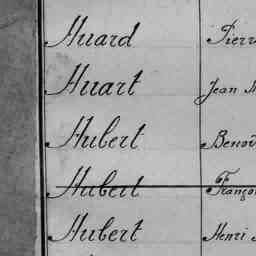 Huard Pierr
Huart Jean
Hubert Benoî
Hubert Franço
Hubert Henri